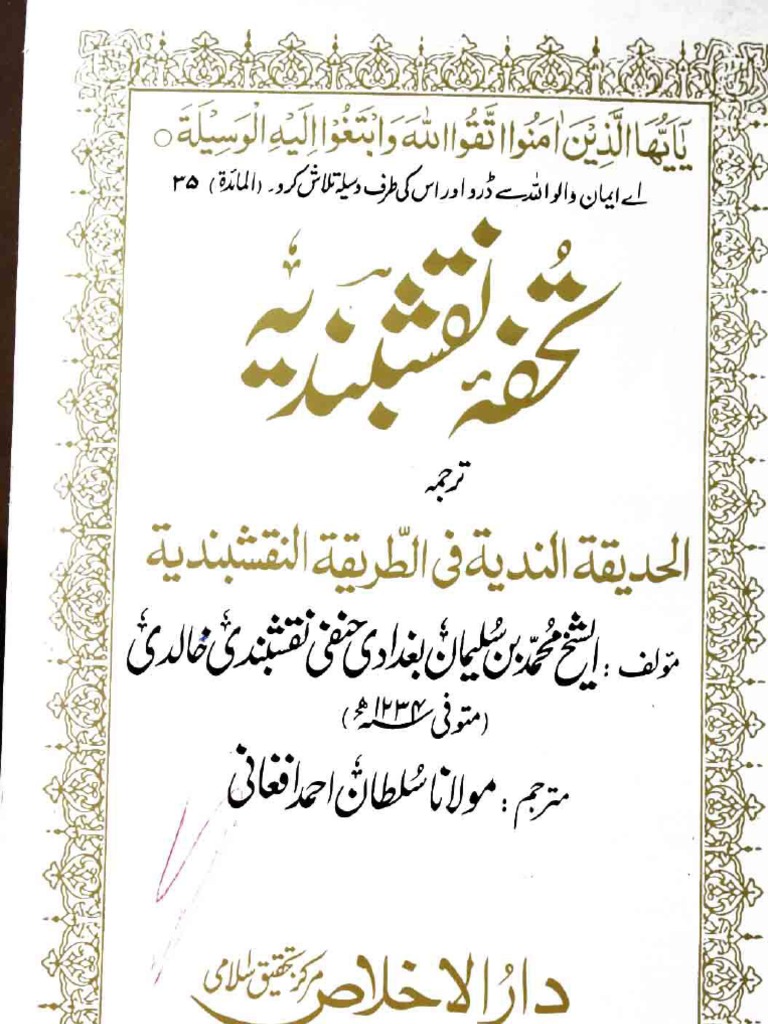 يَٰٓاَيُّهَا الَّذِيْنَ اٰمَنُوا اتَّقُوا اللّٰهَ وَابْتَغُوْٓا اِلَيْهِ الْوَسِيْلَةَ ○
اے ایمان والو اللہ سے ڈرو اور اس کی طرف وسیلہ تلاش کرو۔ (المائدة) ۳۵
تُحفۂ نقشبندیہ
ترجمہ
الحديقة الندية فى الطّريقة النقشبندية
مؤلف : الشیخ محمّد بن سُلیمان بغدادی حنفی نقشبندی خالدی
(متوفی ۱۲۳۴ھ)
مترجم : مولانا سُلطان احمد افغانی
دارُ الاخلاص مرکز تحقیق اسلامی